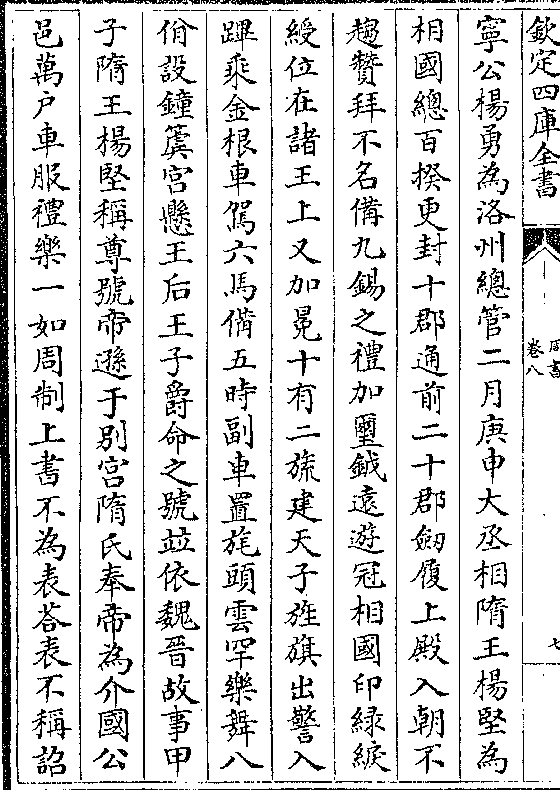 欽定四庫全書
周書
卷八
七
寧公楊勇為洛州總管二月庚申大丞相隋王楊堅為
相國總百揆更封十郡通前二十郡劒履上殿入朝不
趨贊拜不名備九錫之禮加璽鉞遠遊冠相國印緑綟
綬位在諸王上又加冕十有二旒建天子旌旗出警入
蹕乘金根車駕六馬備五時副車置旄頭雲罕樂舞八
佾設鐘簴宮懸王后王子爵命之號並依魏晉故事甲
子隋王楊堅稱尊號帝遜于别宮隋氏奉帝為介國公
邑萬户車服禮樂一如周制上書不為表荅表不稱詔